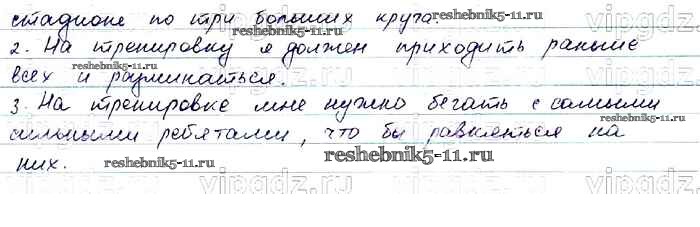 стадионе по три больших круга.
2. На тренировку я должен приходить раньше
всех и разминаться.
3. На тренировке мне нужно бегать с самыми
сильными ребятами, что бы равняться на
них.
reshebnik5-11.ru
reshebnik5-11.ru
reshebnik5-11.ru
reshebnik5-11.ru
reshebnik5-11.ru
reshebnik5-11.ru
vipgdz.ru
vipgdz.ru
vipgdz.ru